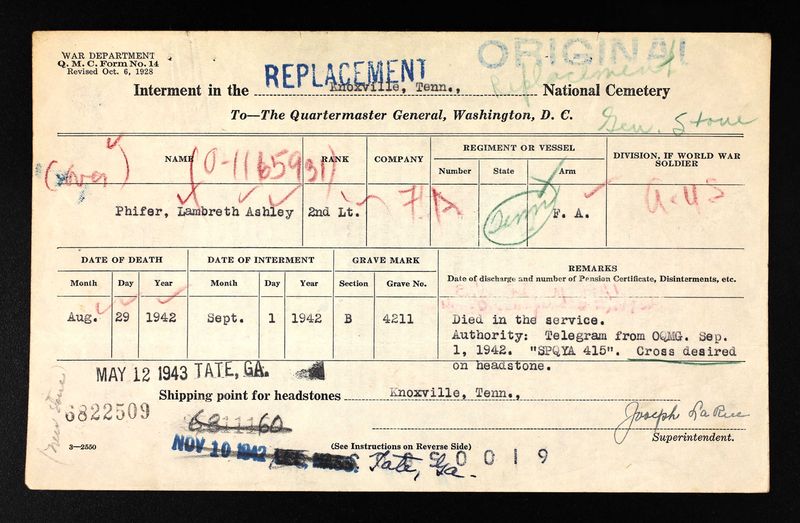 WAR DEPARTMENT
Q. M. C. Form No. 14
Revised Oct. 6, 1928
ORIGINAL
REPLACEMENT
Replacement
Interment in the Knoxville, Tenn., National Cemetery
To—The Quartermaster General, Washington, D. C.
Gen. Stone
NAME RANK COMPANY REGIMENT OR VESSEL DIVISION, IF WORLD WAR SOLDIER
Number State Arm
(Over) (O-1165931)
Phifer, Lambreth Ashley 2nd Lt. FA Tenn F. A. A-US
DATE OF DEATH DATE OF INTERMENT GRAVE MARK REMARKS
Date of discharge and number of Pension Certificate, Disinterments, etc.
Month Day Year Month Day Year Section Grave No.
Aug. 29 1942 Sept. 1 1942 B 4211
Died in the service.
Authority: Telegram from OQMG. Sep.
1, 1942. "SPQYA 415". Cross desired
on headstone.
MAY 12 1943 TATE, GA.
Shipping point for headstones Knoxville, Tenn.,
6822509
6811160
(New Stone)
Joseph LaRue
Superintendent.
3—2550
(See Instructions on Reverse Side)
NOV 10 1942 LEE, MASS. Tate, Ga. 0019